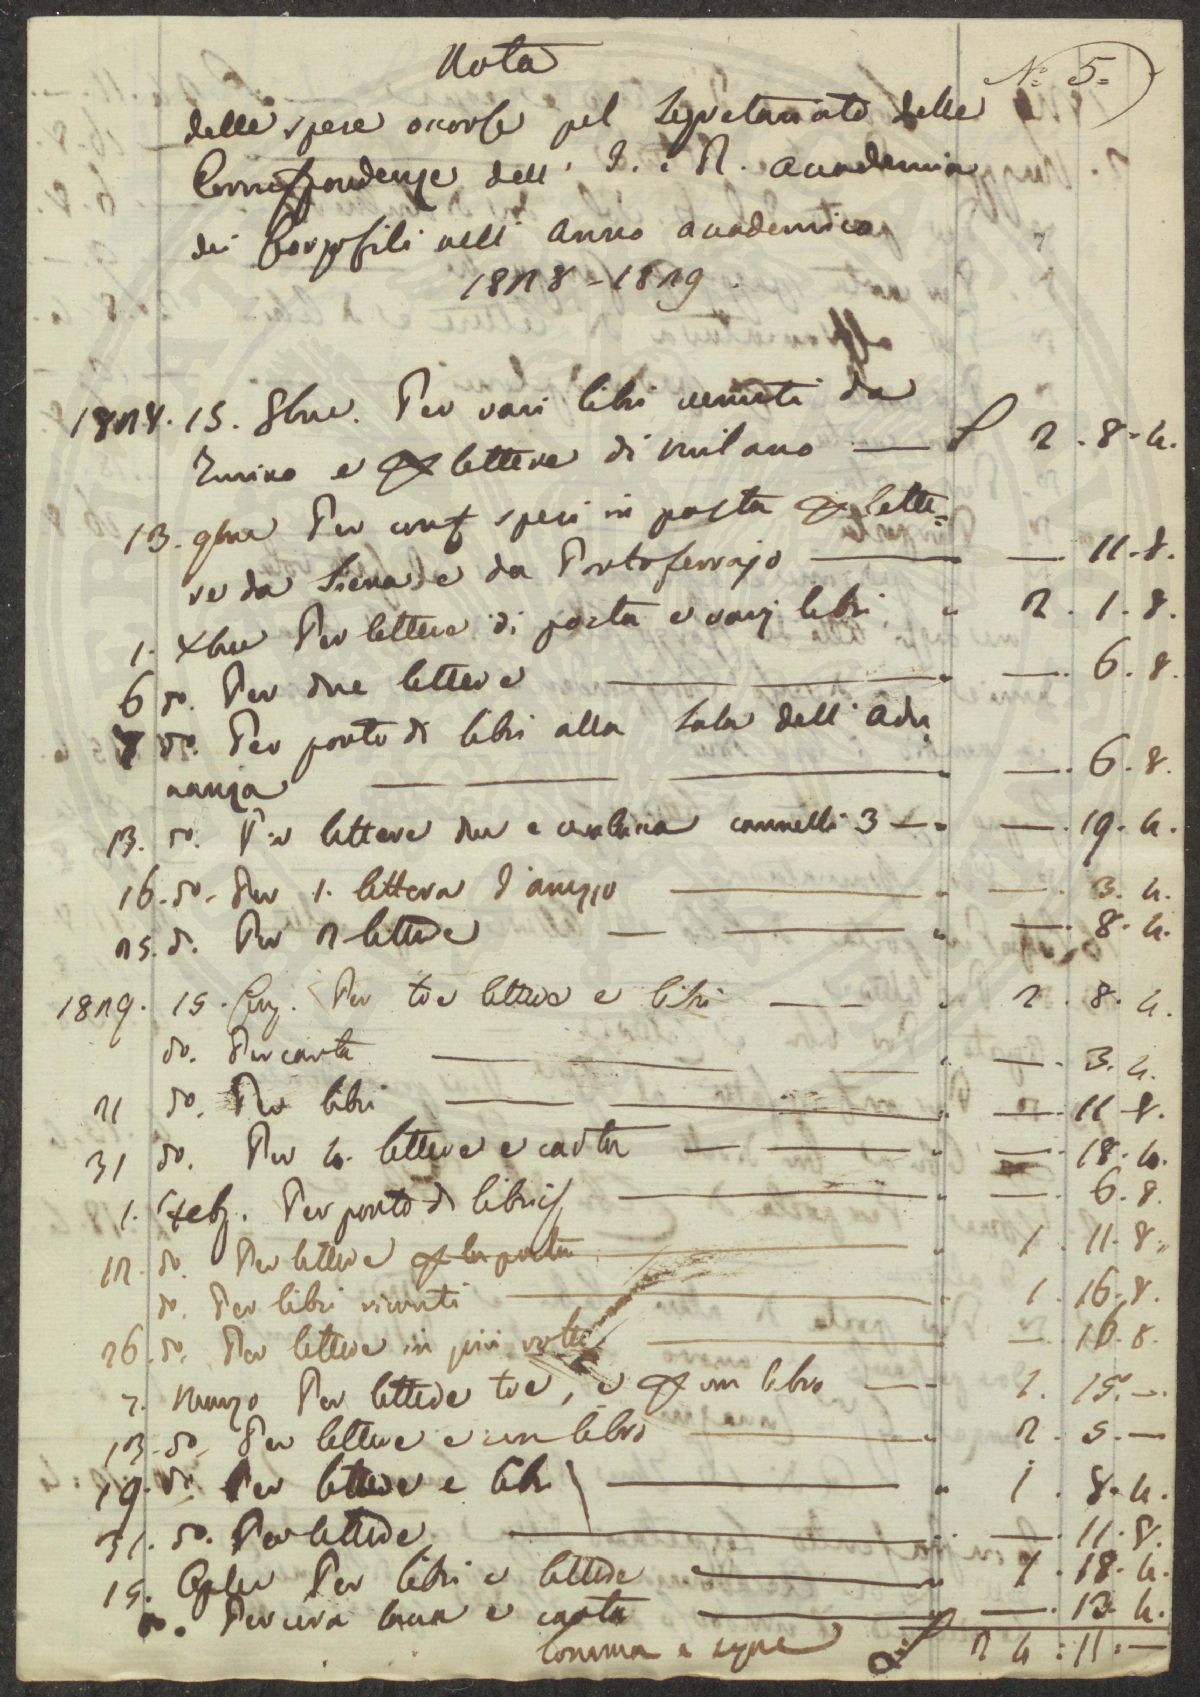 Nota
N.° 5=
delle spese occorse pel Segretariato delle
Corrispondenze dell' I. e R. Accademia
dei Georgofili nell' Anno accademico
1828=1829.
1828. 15. 8bre. Per vari libri venuti da
Torino e lettere di Milano — £ 2. 8. 4.
13. 9bre Per spesi in posta lette=
re da Siena e da Portoferrajo — — 11. 8.
1. Xbre Per lettere di posta e varj libri " 2. 1. 8.
6 do. Per due lettere — " — . 6. 8.
8 do. Per porto di libri alla Sala dell' Adu
nanza — " — . 6. 8.
13. do. Per lettere due e ceralacca cannelli 3 — " — . 19. 4.
16. do. Per 1. lettera d'Arezzo — " — . 3. 4.
25. do. Per 2 lettere — " — . 8. 4.
1829. 15. Genj. Per tre lettere e libri — " 2. 8. 4.
do. Per carta — " — . 3. 4.
21 do. Per libri — " — . 11. 8.
31 do. Per 4. lettere e carta — " — . 18. 4.
1. Febj. Per porto di libri — " — . 6. 8.
12. do. Per lettere — " 1. 11. 8.
do. Per libri ricevuti — " 1. 16. 8.
26. do. Per lettere in più volte — " — . 16. 8.
7. Marzo Per lettere tre, e un libro — 1. 15. —
13. do. Per lettere e un libro — " 2. 5. —
19. do. Per lettere e libri — " 1. 8. 4.
31. do. Per lettere — " — . 11. 8.
15. Aprle Per libri e lettere — " 1. 18. 4.
do. Per cera lacca e carta — " — . 13. 4.
Somma e segue £ 24. 11. —